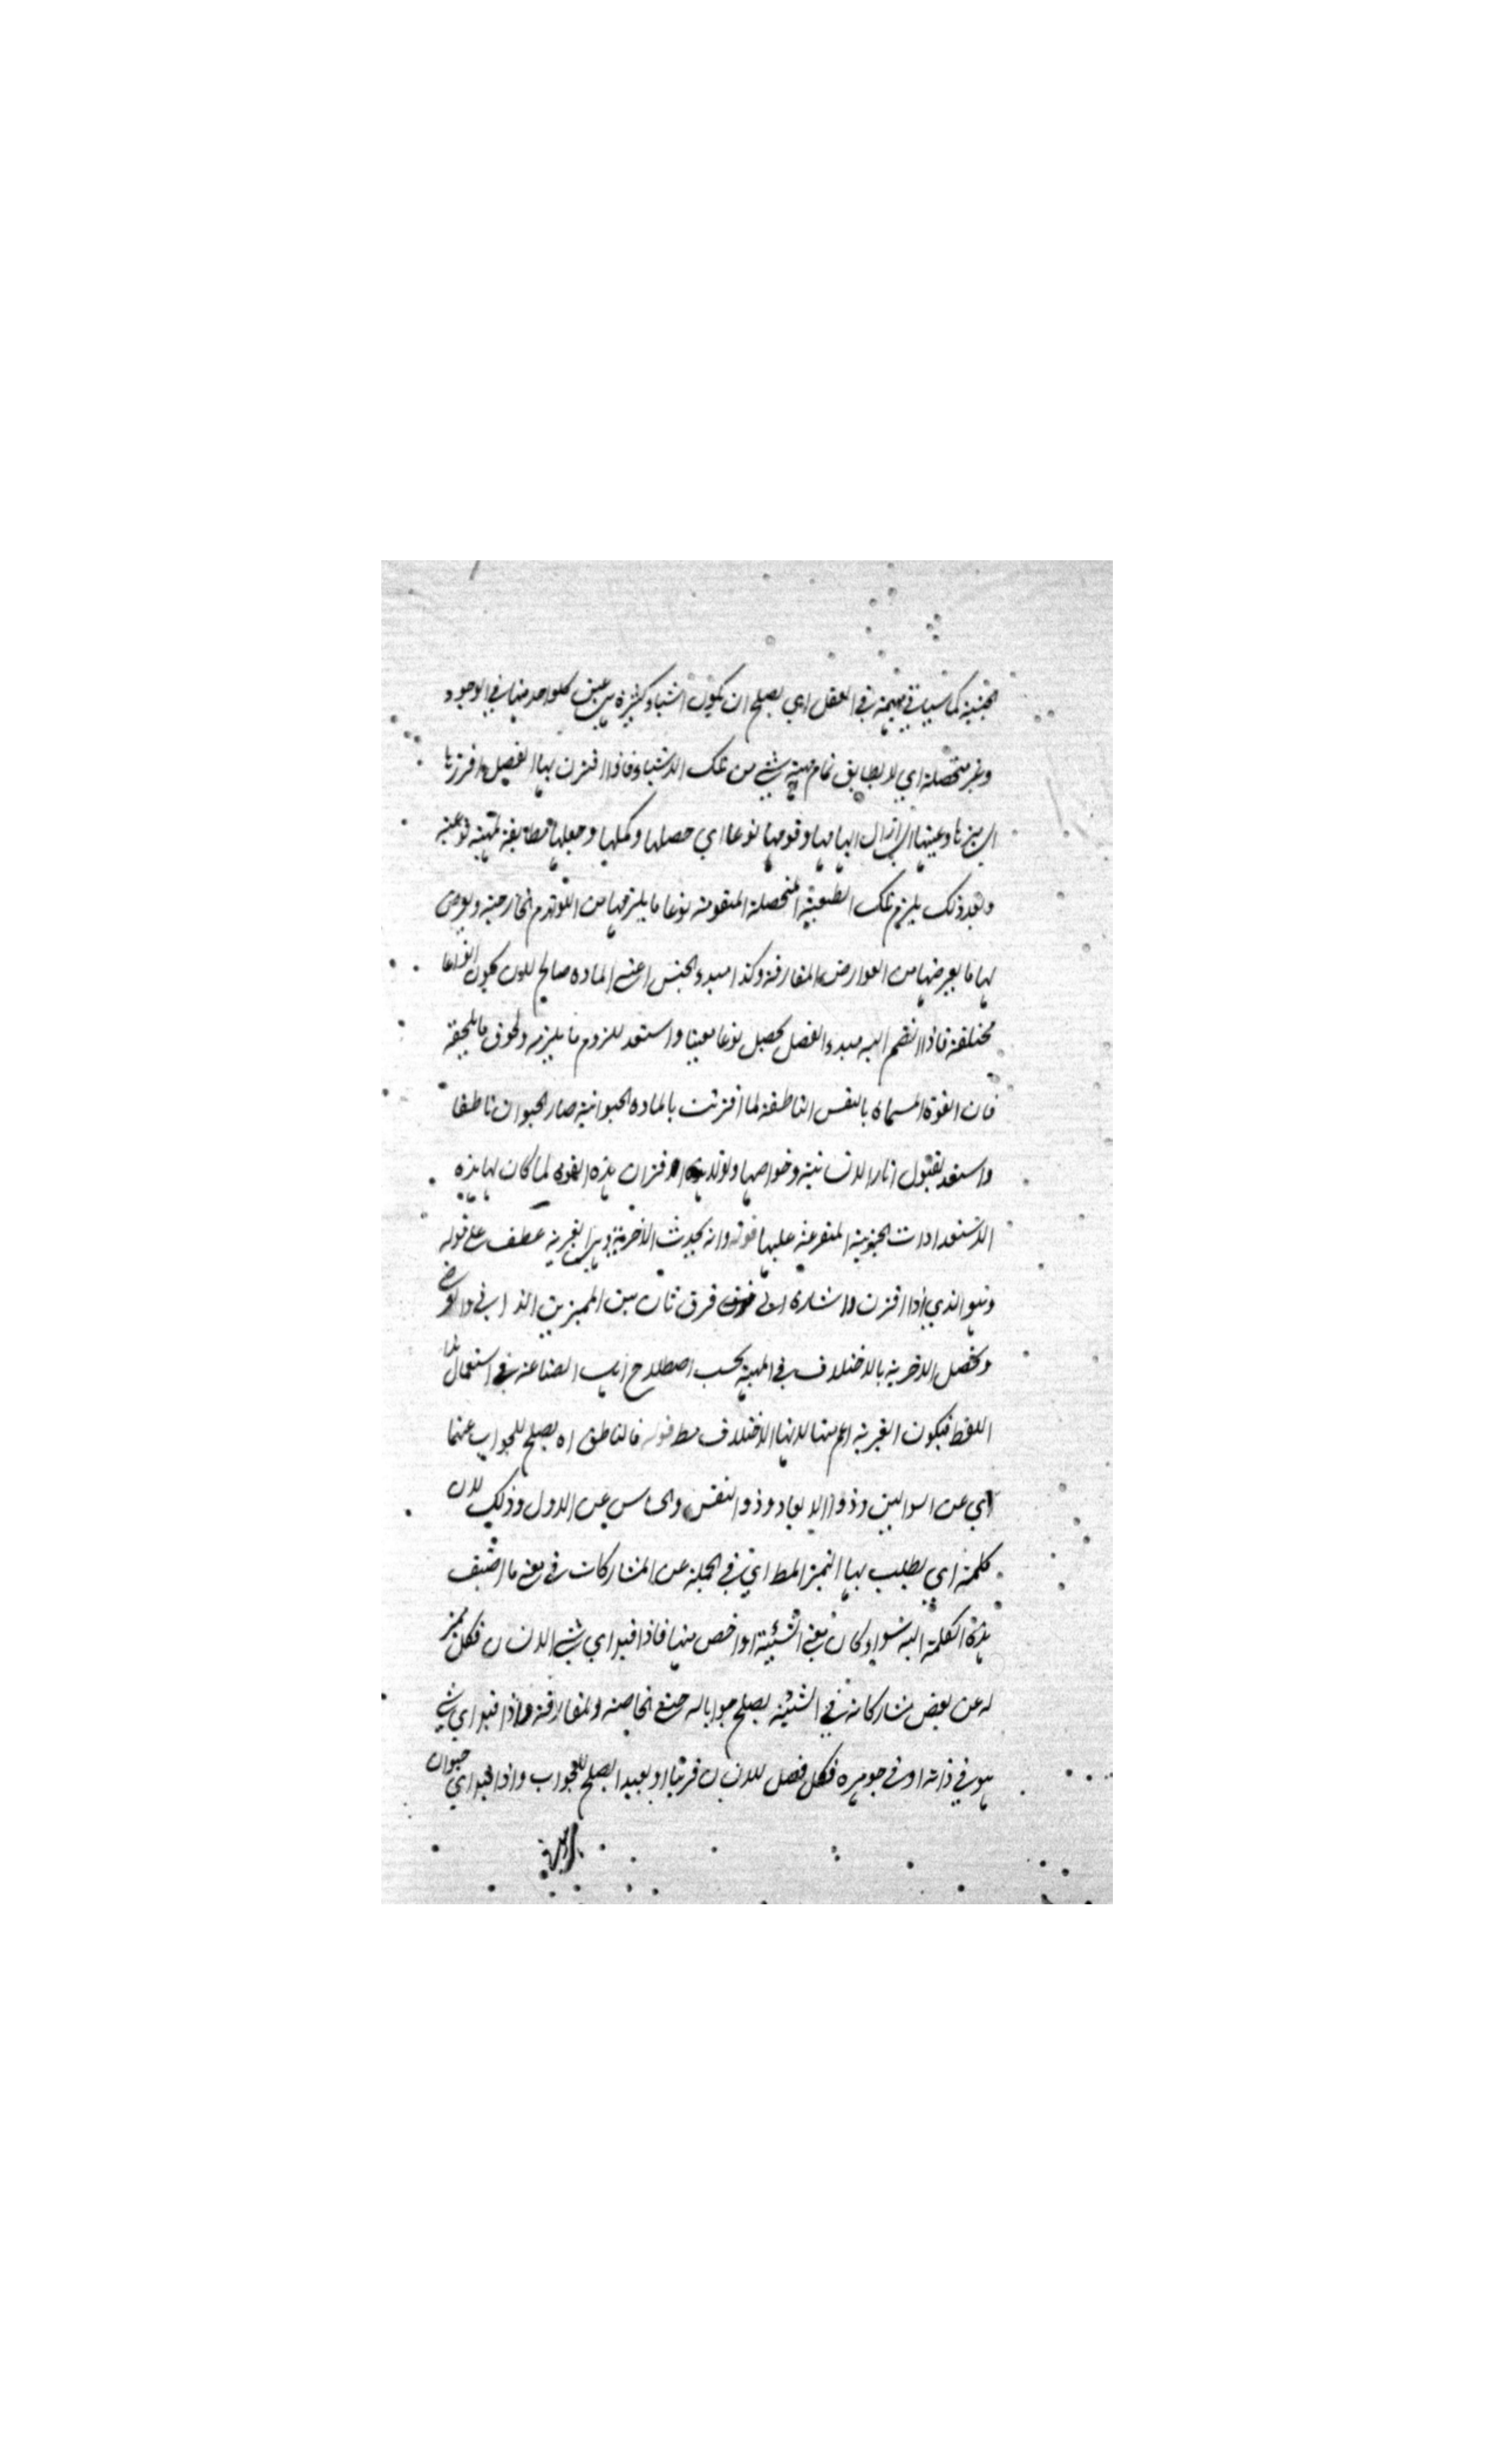 الجنسية كما سيأتي مبهمة في العقل اي يصلح ان يكون اشياء كثيرة هي عين كل واحد منها في الوجود
وغير متحصلة اي لا يطابق تمام مهية شيء من تلك الاشياء فاذا اقترن بها الفصل افرزها
اي ميزها وعينها اي ازال ابهامها وقومها نوعا اي حصلها وكملها وجعلها مطابقة لمهية نوعية
وبعد ذلك يلزم تلك الطبيعة المتحصلة المتقومة نوعا ما يلزمها من اللوازم الخارجية ويعرض
لها ما يعرضها من العوارض المفارقة وكذا مبدء الجنس اعني المادة صالح للان يكون انواعا
مختلفة فاذا انضم اليه مبدء الفصل يحصل نوعا معينا واستعد للزوم ما يلزمه ولحوق ما يلحقه
فان القوة المسماة بالنفس الناطقة لما اقترنت بالمادة الحيوانية صار الحيوان ناطقا
واستعد لقبول اثار الانسانية وخواصها ولولا اقتران هذه القوة لما كان لها هذه
الاستعدادات الجزئية المتفرعة عليها قوله وانه يحدث الآخرية الغيرية عطف على قوله
وهو الذي اذا اقترن اشارة الى فرق ثان بين المميزين الذاتي والعرضي
وتخصل الاخرية بالاختلاف في المهية بحسب اصطلاح ارباب الصناعة في استعمال هذا
اللفظ فيكون الغيرية اعم منها لانها الاختلاف مط قوله فالناطق اه يصلح للجواب عنهما
اي عن السوالين وذو الابعاد وذو النفس والحساس عن الاول وذلك لان
كلمة اي يطلب بها التميز المط اي في الجملة عن المشاركات في معنى ما اضيف
هذه الكلمة اليه سواء كان معنى الشيئية او اخص منها فاذا قيل اي شيء الانسان فكل مميز
له عن بعض مشاركاته في الشيئية يصلح جوابا له حتى الخاصة والمفارقة واذا قيل اي شيء
هو في ذاته او في جوهره فكل فصل للانسان قريبا او بعيدا يصلح للجواب واذا قيل اي حيوان